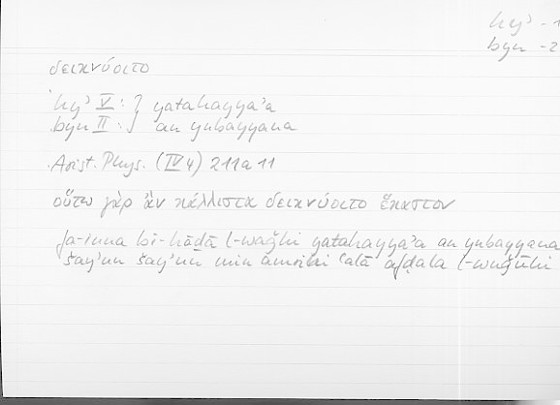 hyʾ - 1
byn - 2
δεικνύοιτο
hyʾ V : } yatahayyaʾa
byn II : } an yubayyana
Arist. Phys. (IV 4) 211a11
οὕτω γὰρ ἂν κάλλιστα δεικνύοιτο ἕκαστον
fa-inna bi-hāḏā l-waǧhi yatahayyaʾa an yubayyana
šayʾun šayʾun min amrihi ʿalā afḍala l-wuǧūhi